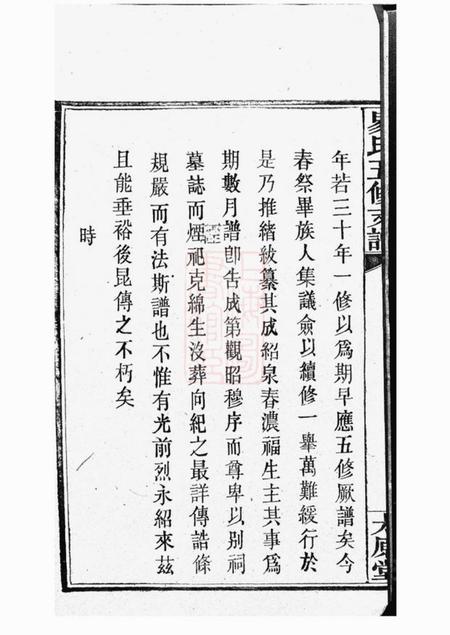 易氏五修支譜
太原堂
年若三十年一修以爲期早應五修厥譜矣今
春祭畢族人集議僉以續修一舉萬難緩行於
是乃推緒紱纂其成紹泉春濃福生主其事爲
期數月譜卽告成第觀昭穆序而尊卑以别祠
墓誌而煙祀克綿生沒葬向紀之最詳傳誥條
規嚴而有法斯譜也不惟有光前烈永紹來茲
且能垂裕後昆傳之不朽矣
時